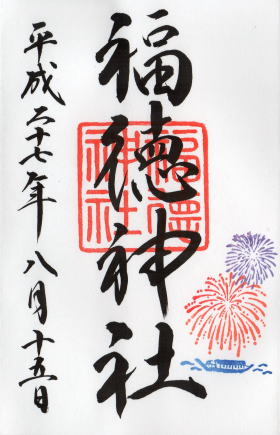 福徳神社
福徳神社
平成二十七年八月十五日